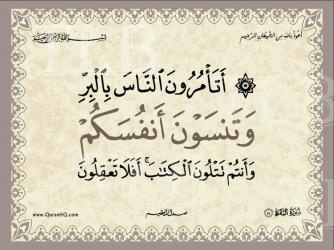 أعوذ بالله من الشيطان الرجيم
بسم الله الرحمن الرحيم
أَتَأۡمُرُونَ ٱلنَّاسَ بِٱلۡبِرِّ
وَتَنسَوۡنَ أَنفُسَكُمۡ
وَأَنتُمۡ تَتۡلُونَ ٱلۡكِتَٰبَۚ أَفَلَا تَعۡقِلُونَ
صدق الله العظيم
سورة البقرة
www.QuranHQ.com